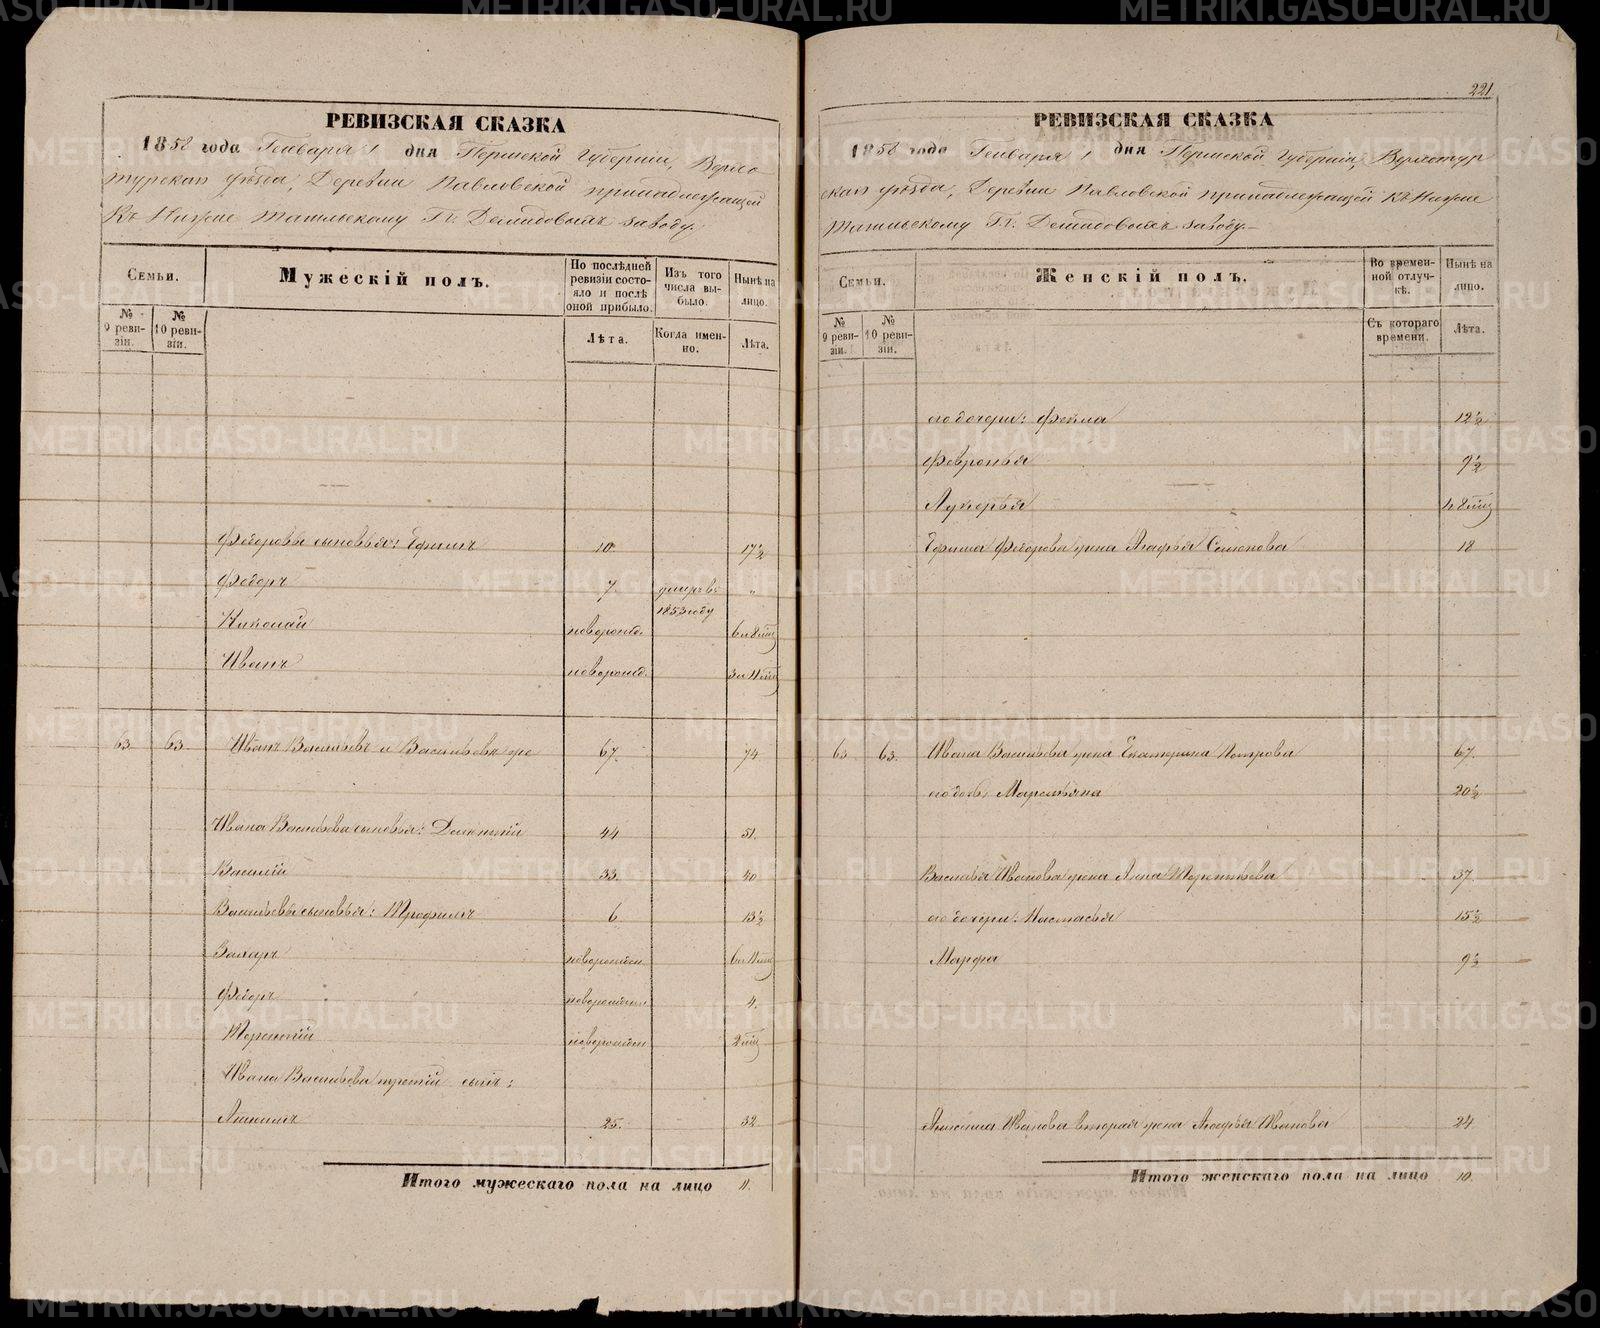 221
РЕВИЗСКАЯ СКАЗКА
1858 года Генваря 1 дня Пермской Губернии, Верхо
турскаго уѣзда, Деревни Павловской принадлежащей
Къ Нижне Тагильскому Гг. Демидовыхъ заводу.
Семьи.
Мужескій полъ.
По послѣдней ревизіи состояло и послѣ оной прибыло.
Изъ того числа выбыло.
Нынѣ на лицо.
№ 9 ревизіи.
№ 10 ревизіи.
Лѣта.
Когда именно.
Лѣта.
Федоровы сыновья: Ефимъ 10 17½
Федоръ 7 умеръ въ 1853 году "
Николай новорожд. 6 и 8 мц
Иванъ новорожд. 3 и 11 мц
63 63 Иванъ Васильевъ и Васильевъ же 67. 74
Ивана Васильева сыновья: 44 51.
Василій 33. 40
Васильевы сыновья: Трофимъ 6 13½
Захаръ новорожден 6 и 11 мц
Федоръ новорожден 4.
Терентій новорожден 2 мц
Ивана Васильева третій сынъ:
25. 32
Итого мужескаго пола на лицо 11.
РЕВИЗСКАЯ СКАЗКА
1858 года Генваря 1 дня Пермской Губерніи, Верхотур
скаго уѣзда, Деревни Павловской принадлежащей Къ Нижне
Тагильскому Гг. Демидовыхъ заводу.
Семьи.
Женскій полъ.
Во временной отлучкѣ.
Нынѣ на лицо.
№ 9 ревизіи.
№ 10 ревизіи.
Съ котораго времени.
Лѣта.
его дочери: Фекла 12½
Февронья 9½
Лукерья 4 и 8 мц
Ефима Федорова жена Агафья Семенова 18
63 63. Ивана Васильева жена Екатерина Петрова 67.
его дочь Маремьяна 20½
Василья Иванова жена Анна Терентьева 37.
его дочери: Настасья 15½
Марфа 9½
Иванова вторая жена Агафья Иванова 24
Итого женскаго пола на лицо 10.
METRIKI.GASO-URAL.RU